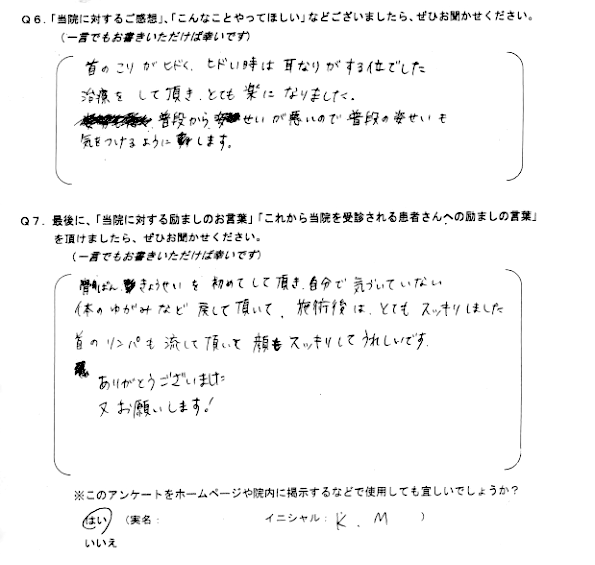 Q6.「当院に対するご感想」、「こんなことやってほしい」などございましたら、ぜひお聞かせください。
(一言でもお書きいただければ幸いです)
首のこりがヒドく、ヒドい時は耳なりがする位でした
治療をして頂き、とても楽になりました。
普段から、姿せいが悪いので普段の姿せいも
気をつけるようにします。
Q7.最後に、「当院に対する励ましのお言葉」「これから当院を受診される患者さんへの励ましの言葉」
を頂けましたら、ぜひお聞かせください。
(一言でもお書きいただければ幸いです)
骨ばんきょうせいを初めてして頂き、自分で気づいていない
体のゆがみなど戻して頂いて、施術後は、とてもスッキリしました
首のリンパも流して頂いて顔もスッキリしてうれしいです。
ありがとうございました
又お願いします!
※このアンケートをホームページや院内に掲示するなどで使用しても宜しいでしょうか?
はい (実名: イニシャル: K. M )
いいえ